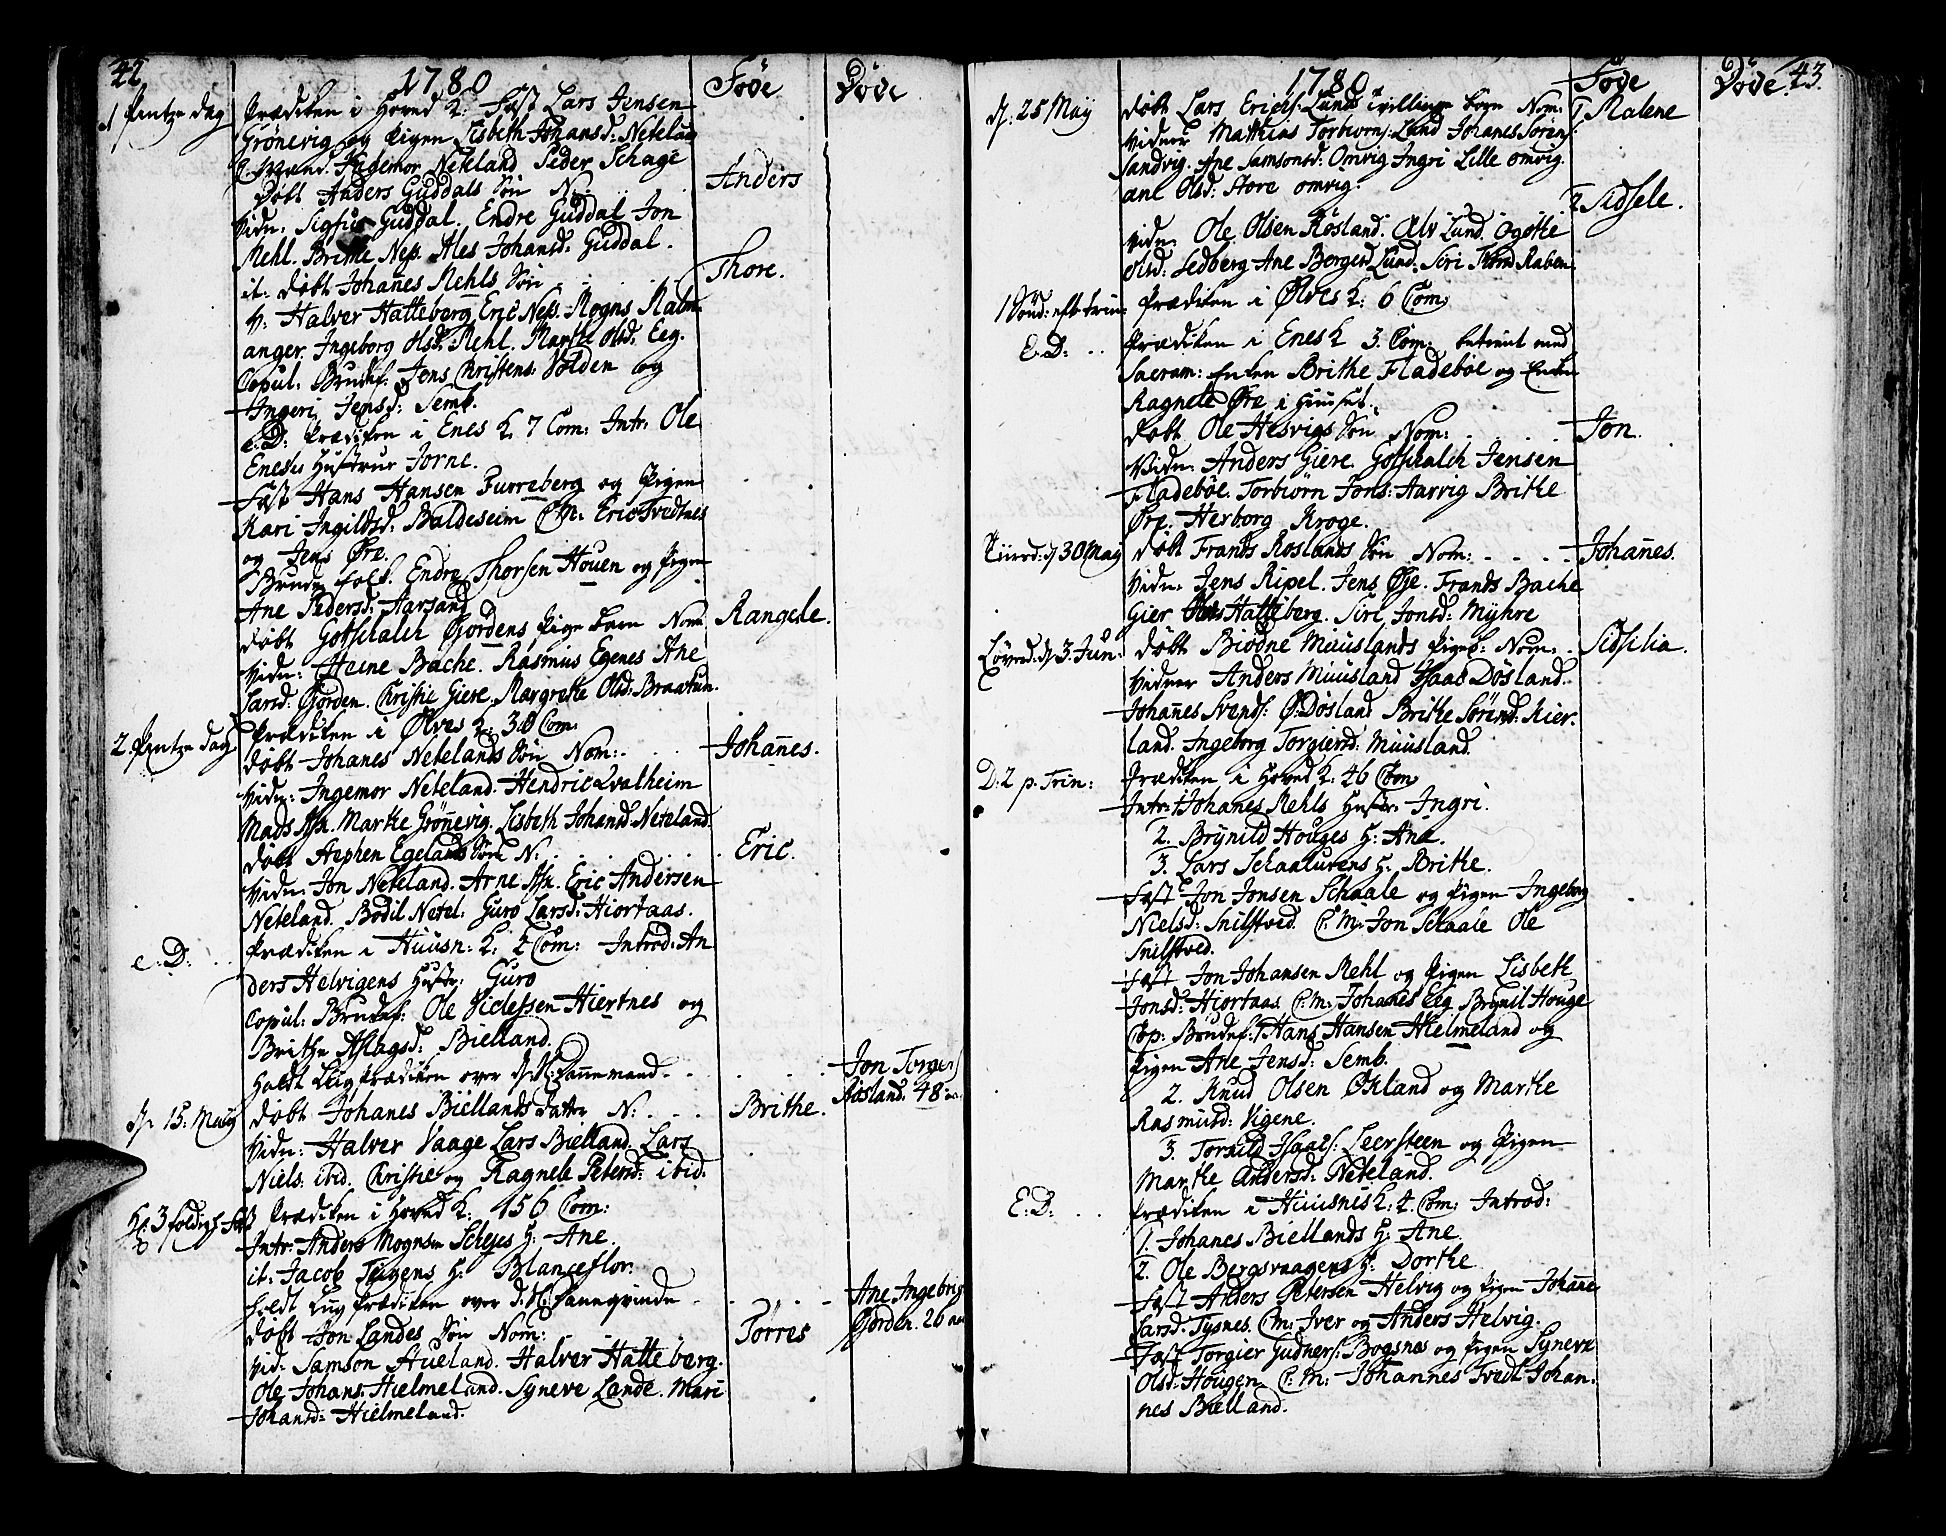 42.
1780
Føde
Døde
1 Pentze dag
Prædiken i Hoved K: Fæst Lars Jensen
Grönevig og Pigen Lisbeth Johansd: Netelan
C. mænd. Ingemor Neteland Peder Schage
Døbt Anders Guddals Sön N.
Anders
Vidn: Sigfus Guddal. Endre Guddal Jon
Mehl. Brithe Nes. Ales Johansd. Guddal.
it: Døbt Johañes Mehls Sön
Thore.
V: Halver Hatteberg Eric Nes. Mogns Malm
anger. Ingeborg Olsd: Mehl. Marthe Olsd: Eeg.
Copul: Brudef: Jens Christens: Volden og
Ingeri Jensd: Semb.
e.D: Prædiken i Enes K. 7 Com: Intr: Ole
Enesis Hustrue Jorne.
Fæst Hans Hansen Furreberg og Pigen
Kari Ingildsd: Baldeseim C.M: Eric Tvedtnes
og Jens Øre.
Brude folk. Endre Thorsen Houen og Pigen
Ane Pedersd: Aarsand
Døbt Gotschalch Gjordens Pige barn Nom
Rangele.
Vidn: Heine Bache. Rasmus Egenes Ane
Larsd: Gjorden. Christie Giere. Margrethe Olsd: Braatun.
2. Pentze dag
Prædiken i Ølves K: 30 Com:
Døbt Johanes Netelands Sön Nom:
Johañes.
Vidn: Ingemor Neteland. Hendric Qvalheim
Mads Marthe Gröñevig. Lisbeth Johansd Neteland.
Døbt Stephen Egelands Sön N:
Eric.
Vidn: Jon Neteland. Arne Eric Andersen
Neteland. Bodil Netel: Guro Larsd: Hiortaas.
e.D:
Prædiken i Huusn: K. 4 Com: Introd: An
ders Helvigens Hustr: Guro
Copul: Brudef: Ole Hiertnes og
Brithe Aslagsd: Bielland.
Holdt Liigprædiken over d. S: Dannemand
Jon Torgers
Aasland. 48
d. 15: Maij
Døbt Johanes Biellands Datter N:
Brithe.
Vidn: Halver Vaage Lars Bielland. Lars
Niels. ibid. Christie og Ragnele Petersd: ibid.
H: 3 foldigh: Fæst
Prædiken i Hoved K: 156 Com:
Intr: Anders Mognsen Scheies H: Ane.
it: Jacob Teigens H: Blanceflor.
Holdt Liig Prædiken over d. S: Danneqvinde
Ane Ingebrig
Gjorden. 26
Døbt Jon Landes Sön Nom:
Torres
Vid: Samson Aueland. Halver Hatteberg.
Ole Johans: Hielmeland. Syneve Lande. Mari
Johansd: Hielmeland.
1780
Føde
Døde
43.
d: 25 Maij
Døbt Lars Erichs: Lunds tvillinge börn Nom:
1 Malene
Vidner Mathias Torbiørns: Lund Johanes Sörens:
Sandvig. Ane Samsonsd: Omvig Ingri Lille omvig.
ane Olsd: Store omvig.
2 Sidsele.
Vidn: Ole Olsen Røsland. Alv Lund. Ogothe
Olsd: Sedberg Ane Bergesd Lund. Siri Raben
1 Sönd: efte Trin:
Prædiken i Ølves K: 6 Com
E.D:
Prædiken i Enes K 3. Com: betient med
Sacram: Enken Brithe Fladebøe og Enken
Ragnele Øre i Huuset.
Døbt Ole Hesvigs Sön Nom:
Jon.
Vidn: Anders Giere. Gotschalch Jensen
Fladebøe. Torbiørn Jons: Aarvig Brithe
Øre. Herborg Kroge.
d 30 Maij
Døbt Frands Roslands Sön Nom:
Johañes.
Vidn: Jens Ripel. Jens Øye. Frands Bache
Gier Hatteberg. Siri Jonsd: Myhre
Løverd: d 3. Jun:
Døbt Biodne Muuslands Pigeb: Nom:
Sidsilia.
Vidner Anders Muusland Isaac Dösland.
Johañes Svends: Ø:Dösland Brithe Sörend: Kier.
land. Ingeborg Torgiersd: Muusland.
D: 2 p. Trin:
Prædiken i Hoved K: 46 Com
Intr: 1 Johanes Mehls Hustr: Ingri.
2. Brynild Houges H: Ane.
3. Lars Schaalurens H: Brithe.
Fæst Jon Jonsen Schaale og Pigen Ingeborg
Nielsd: Snilstved. C.M: Jon Schaale Ole
Snilstved.
Fæst Jon Johansen Mehl og Pigen Lisbeth
Jonsd: Hiortaas C:M: Johañes Eeg. Brynil Houge
Cop: Brudef: 1 Hans Hansen Hielmeland og
Pigen Ane Jensd: Semb.
2. Knud Olsen Økland og Marthe
Rasmusd: Vigene.
3. Torkild Isaacs: Leersteen og Pigen
Marthe Andersd: Neteland.
E:D:
Prædiken i Huusnes K: 4. Com: Introd:
1. Johanes Biellands H: Ane.
2. Ole Bergsvaagens H: Dorthe
Fæst Anders Petersen Helvig og Pigen Johane
Larsd: Tysnes. C.M: Iver og Anders Helvig.
Fæst Torgier Gudners: Bogsnes og Pigen Syneve
Olsd: Hougen. C.M: Johannes Tvedt Johan.
nes Bielland.